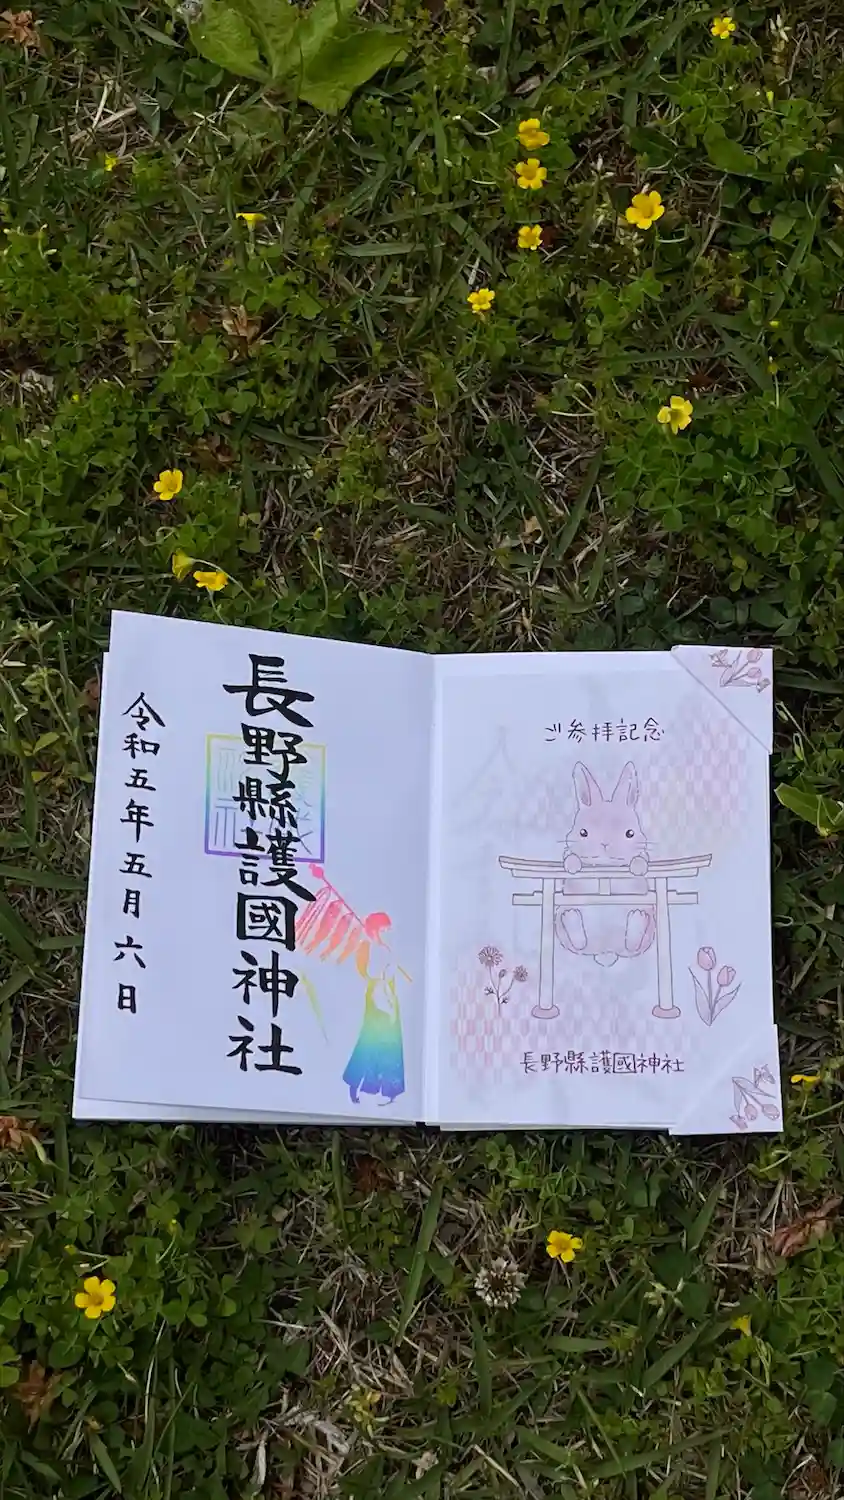 長野縣護國神社
令和五年五月六日
ご参拝記念
長野縣護國神社